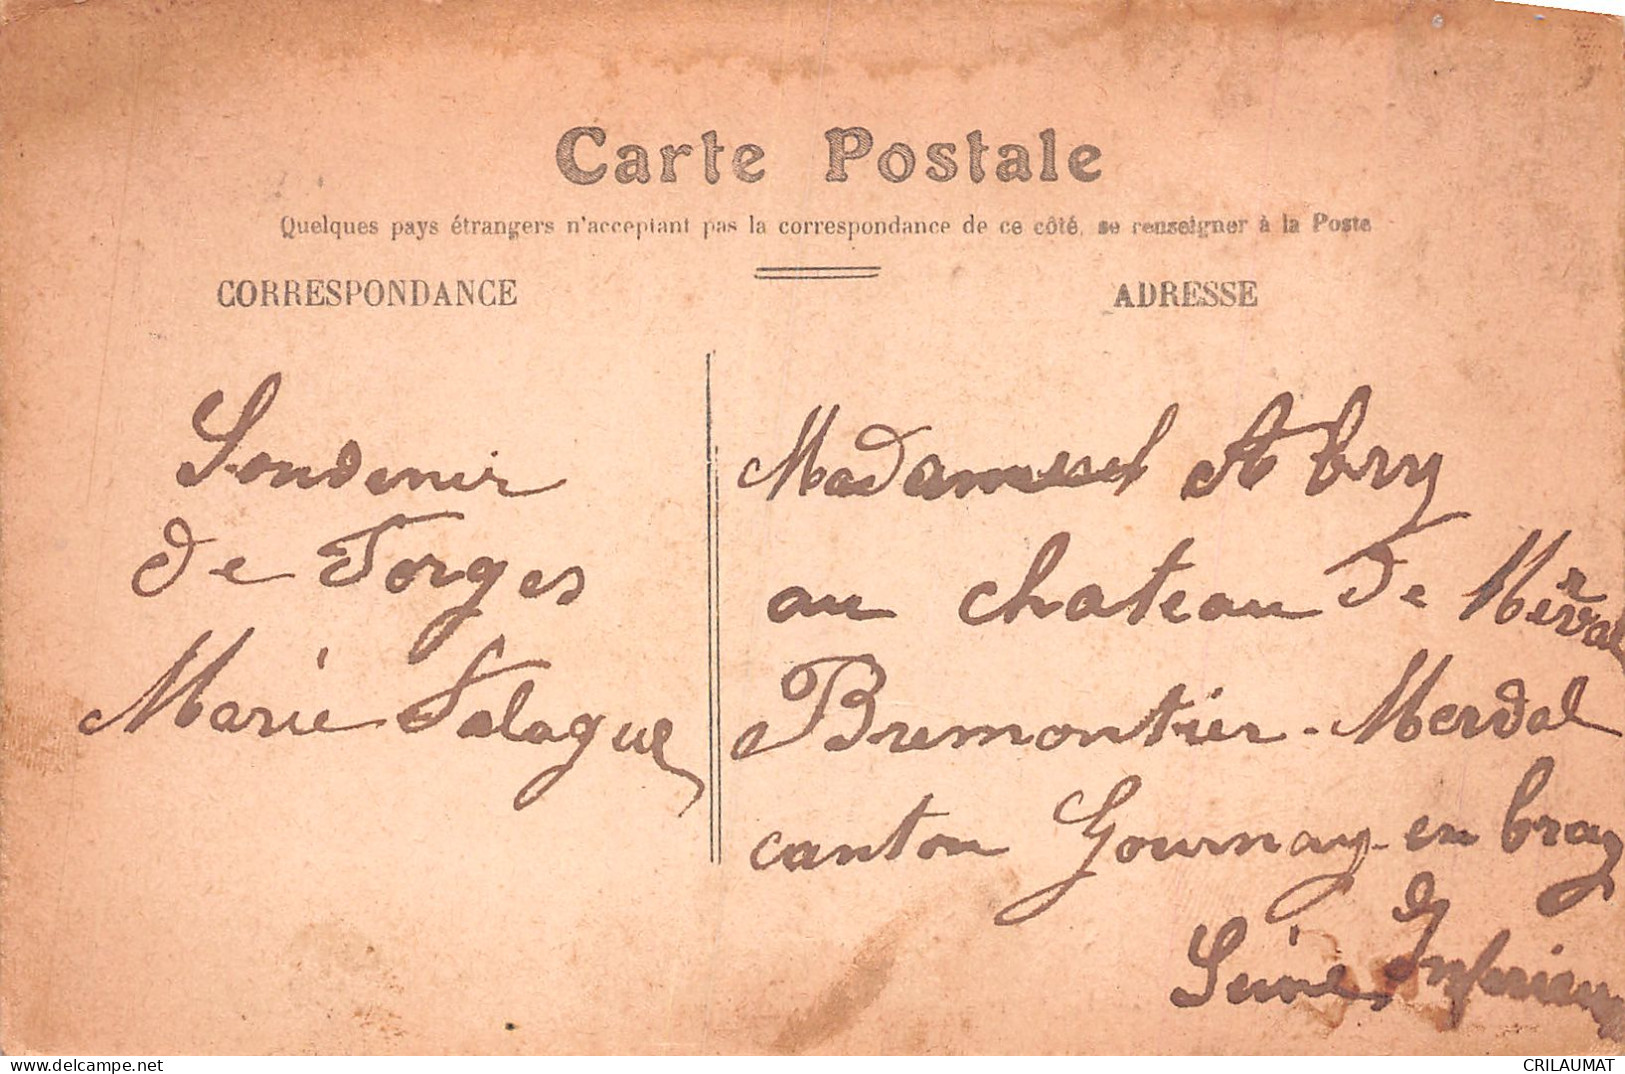 Carte Postale
Quelques pays étrangers n'acceptant pas la correspondance de ce côté, se renseigner à la Poste
CORRESPONDANCE
ADRESSE
Souvenir
de Forges
Marie
Madamesel Abry
au chateau de Mérval
Bremontier-Merval
canton Gournay-en bray
Seine Inferieur
delcampe.net
CRILAUMAT